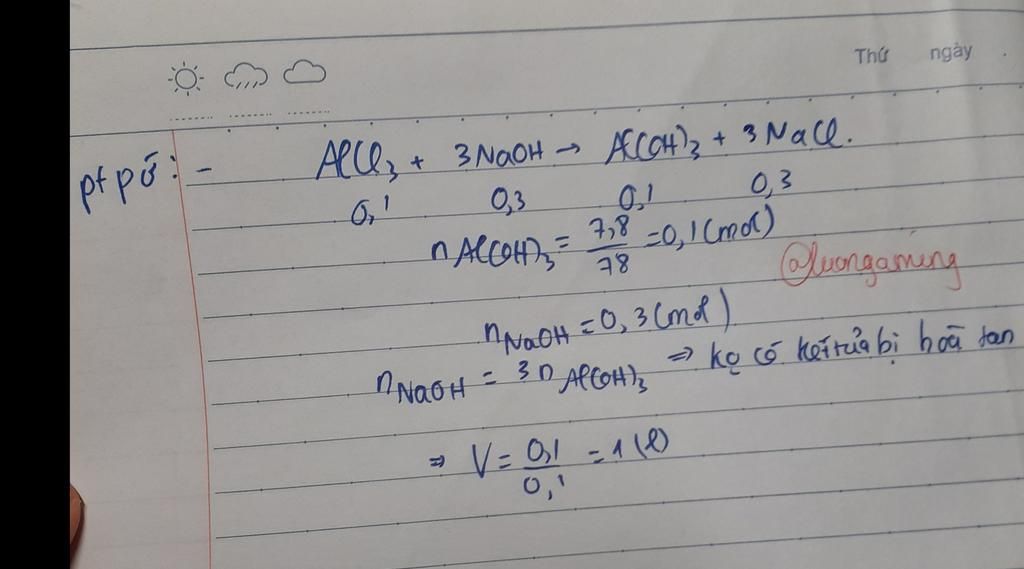 Thứ ngày .
ptpứ: - AlCl₃ + 3NaOH → Al(OH)₃ + 3NaCl.
0,1 0,3 0,1 0,3
nAl(OH)₃ = 7,8/78 = 0,1 (mol)
@luongaming
nNaOH = 0,3 (mol)
nNaOH = 3nAl(OH)₃ ⇒ ko có kết tủa bị hoà tan
⇒ V = 0,1/0,1 = 1 (l)